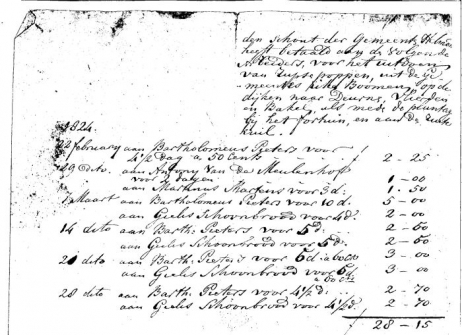 den Schout der Gemeente
heeft betaald aan de volgende
Arbeiders, voor het uitdoen
van rupse poppen, uit de ge
meentes Boomen, op de
dijken naar Deurne, Vlierden
en Bakel, als mede de plantag
bij het fortuin, en aan de
kuil.
1824.
22 february aan Bartholomeus Pieters voor
4 1/2 dag a 50 Cents 2 - 25
29 dito aan Antony Van der Meulenhoff
voor 2 dagen 1 - 00
aan Martinus Martens voor 3 d: 1 - 50
7 Maart aan Bartholomeus Pieters voor 10 d. 5 - 00
aan Gielis Schoonbrood voor 4 d. 2 - 00
14 dito aan Barth: Pieters voor 5 d. 2 - 50
aan Gielis Schoonbrood voor 5 d. 2 - 50
21 dito aan Barth: Pieters voor 5 d. a 60 cts 3 - 00
aan Gielis Schoonbrood voor 5 d. 3 - 00
a 60 cts
28 dito aan Barth: Pieters voor 4 1/2 d. 2 - 70
aan Gielis Schoonbrood voor 4 1/2 d. 2 - 70
28 - 15